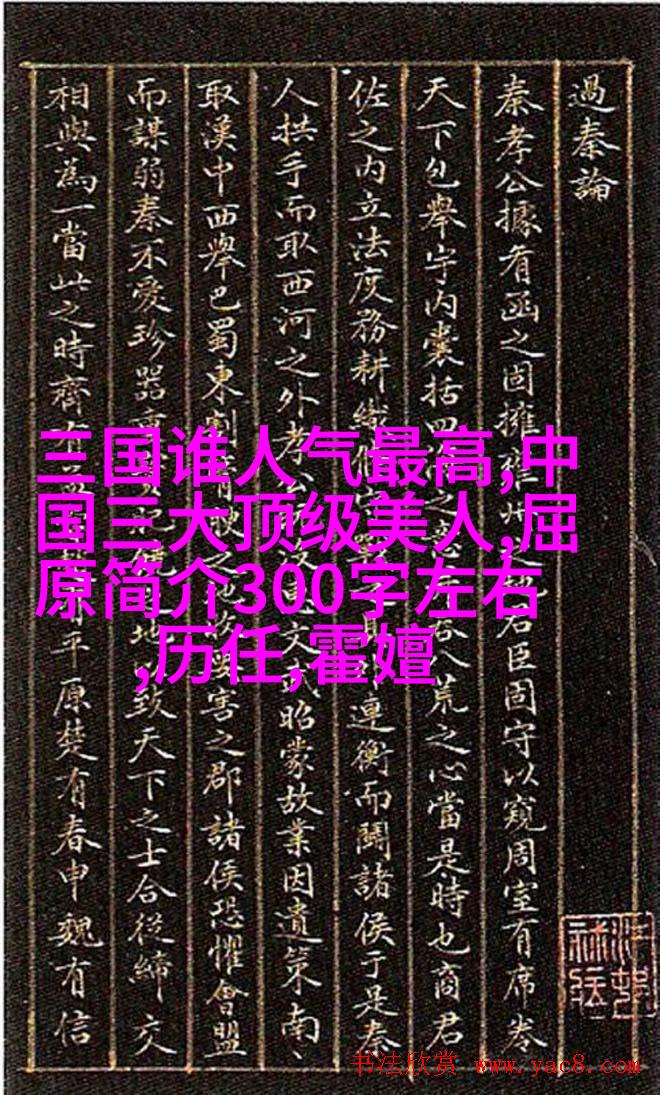 過秦論
秦孝公據肴函之固擁雍君臣固守以窺周室有席卷
天下包舉宇内囊括四之荒之心當是時也商君
佐之内立法度務耕織連衡而鬪諸侯于是秦
人拱手而取西河之外孝文昭蒙故業因遺策南
取漢中西舉巴蜀東割害之郡諸侯恐懼會盟
而謀弱秦不愛珍器地致天下之士合從締交
相與為一當此之時齊有平原楚有春申魏有信
三国谁人气最高,中
国三大顶级美人,屈
原简介300字左右
,历任,霍嬗
书法欣赏 www.yac8.com